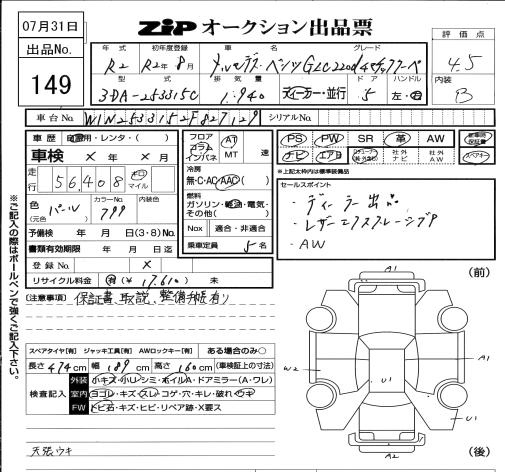 07月31日
ZIP オークション出品票
出品No.
149
年式 初年度登録 車名 グレード
R2 R2年8月 メルセデス・ベンツGLC220d4マチッククーペ
型式 排気量 ドア ハンドル
3DA-253315C 1.940 ディーラー・並行 5 左・右
評価点
4.5
内装
B
車台No. W1N2533152F827129 シリアルNo.
車歴 自家用・レンタ・( )
車検 × 年 × 月
走行 56,408 キロ マイル
色(元色) パール カラーNo. 799 内装色
予備検 年 月 日(3・8)No.
書類有効期限 年 月 日迄
登録No. ×
リサイクル料金 有(¥ 17.610)
フロア コラム インパネ AT MT 速
冷房
無・C・AC・AAC
燃料
ガソリン・軽油・電気・その他( )
Nox 適合・非適合
乗車定員 5名
PS PW SR 革 AW 新車時保証書
ナビ エアB 社外ナビ 社外AW スペアキー
※上記太枠内は標準装備品
セールスポイント
・ディーラー出品
・レザーエクスクルーシブP
・AW
(注意事項) 保証書、取説、整備手帳有り
スペアタイヤ[有] ジャッキ工具[有] AWロックキー[有] ある場合のみ○
長さ 474cm 幅 189cm 高さ 160cm (車検証上の寸法)
検査記入
外装 小キズ・小ハ・シミ・ホイルA・ドアミラー(A・ワレ)
室内 ヨゴレ・キズ・スレ・コゲ・穴・キレ・破れ・ウキ
FW トビ石・キズ・ヒビ・リペア跡・X要ス
天張ウキ
※ご記入の際はボールペンで強くご記入下さい。
(前)
A1
W2
U1
A1
U1
A1
(後)